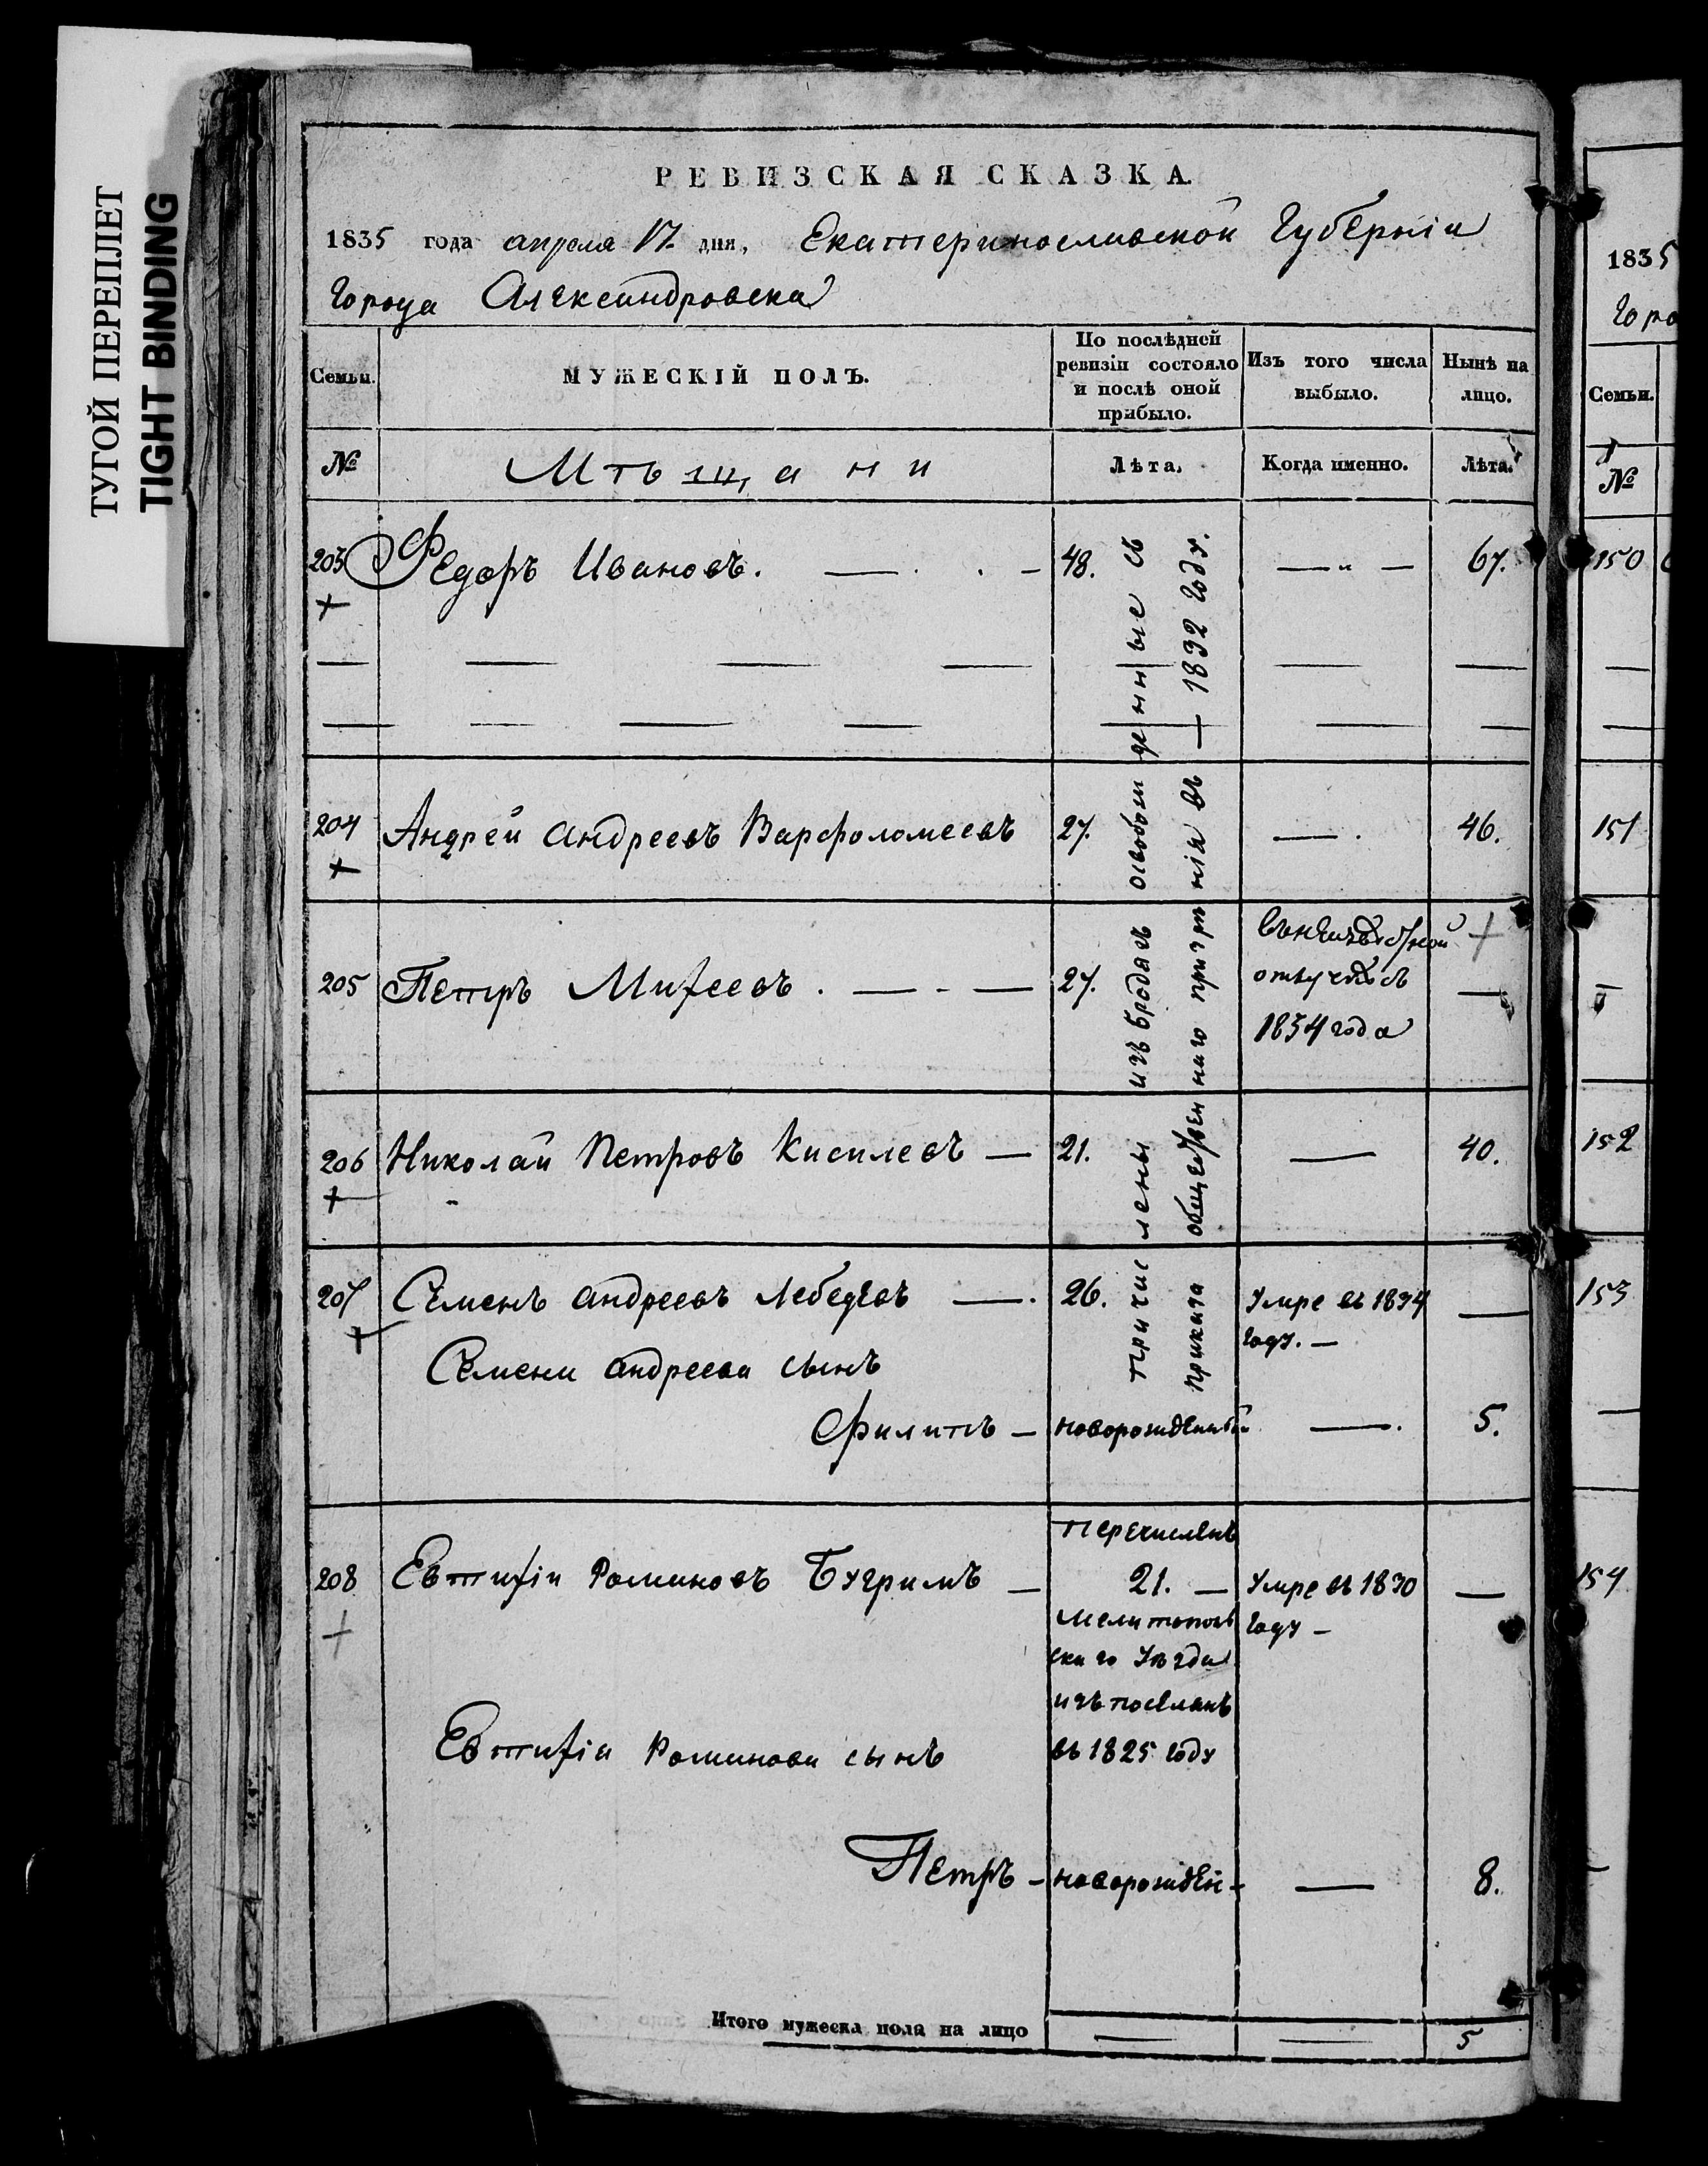 ТУГОЙ ПЕРЕПЛЕТ
TIGHT BINDING
РЕВИЗСКАЯ СКАЗКА.
1835 года апреля 17 дня, Екатеринославской Губерніи
Города Александровска
Семьи.
МУЖЕСКІЙ ПОЛЪ.
По послѣдней ревизіи состояло и послѣ оной прибыло.
Изъ того числа выбыло.
Нынѣ на лицо.
№
Мѣщани
Лѣта.
Когда именно.
Лѣта.
203 Федоръ Ивановъ. 48. 67.
204 Андрей Андреевъ Варфоломеевъ 27. 46.
205 Петръ Михеевъ. 27.
отлучкѣ съ
1834 года
206 Николай Петровъ Киселевъ 21. 40.
207 Семенъ Андреевъ Лебедевъ 26. Умре въ 1834
году.
Семена Андреева сынъ
Филипъ новорожденный 5.
причислены изъ бродягъ освобожденные съ
приказа общественнаго призрѣнія въ 1832 году.
перечисленъ
208 Евтифій Романовъ Бугримъ 21. Умре въ 1830
Мелитополь году
скаго Уѣзда
изъ поселянъ
Евтифія Романова сынъ въ 1825 году
Петръ новорожден 8.
Итого мужеска пола на лицо 5
1835
Горо
Семьи.
№
150
151
152
153
154